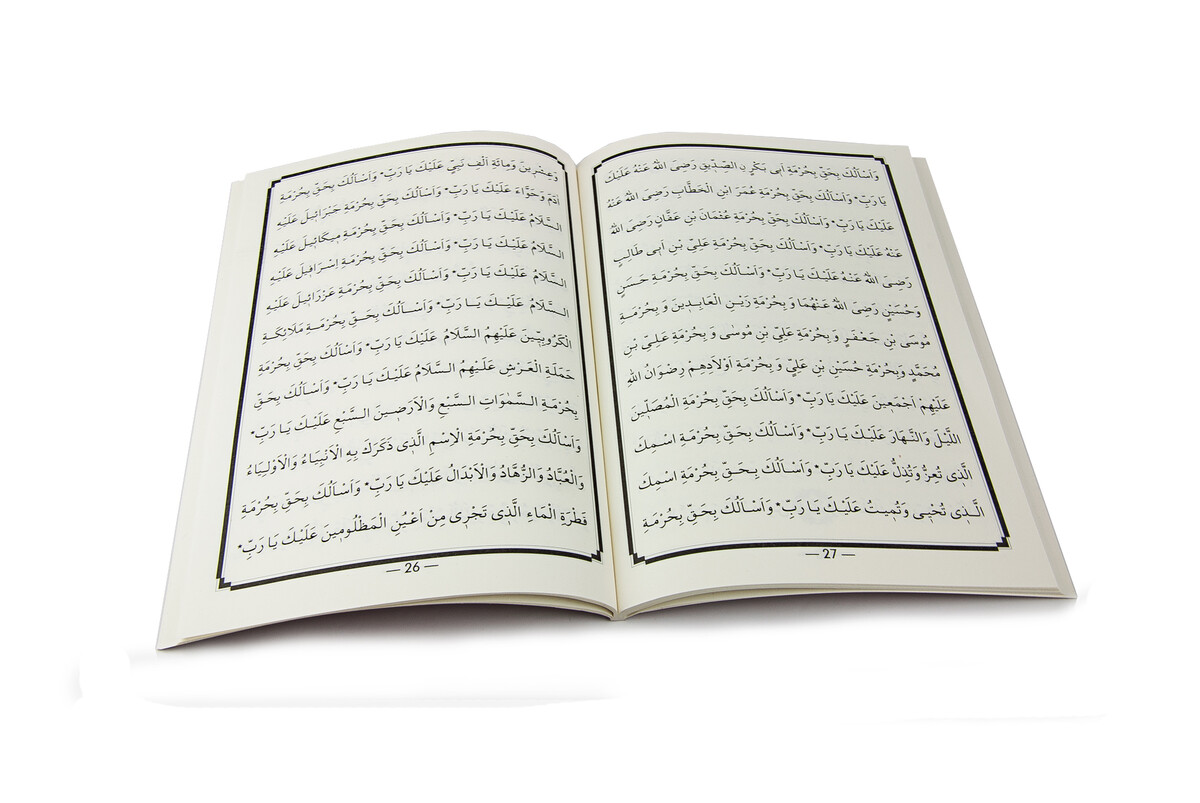 وَعِشْرِينَ وَمِائَةِ اَلْفِ نَبِيٍّ عَلَيْكَ يَا رَبِّ * وَاَسْاَلُكَ بِحَقِّ بِحُرْمَةِ
اٰدَمَ وَحَوَّاءَ عَلَيْكَ يَا رَبِّ * وَاَسْاَلُكَ بِحَقِّ بِحُرْمَةِ جَبْرَائِيلَ عَلَيْهِ
السَّلَامُ عَلَيْكَ يَا رَبِّ * وَاَسْاَلُكَ بِحَقِّ بِحُرْمَةِ مِيكَائِيلَ عَلَيْهِ
السَّلَامُ عَلَيْكَ يَا رَبِّ * وَاَسْاَلُكَ بِحَقِّ بِحُرْمَةِ اِسْرَافِيلَ عَلَيْهِ
السَّلَامُ عَلَيْكَ يَا رَبِّ * وَاَسْاَلُكَ بِحَقِّ بِحُرْمَةِ عَزْرَائِيلَ عَلَيْهِ
السَّلَامُ عَلَيْكَ يَا رَبِّ * وَاَسْاَلُكَ بِحَقِّ بِحُرْمَةِ مَلَائِكَةِ
الْكَرُوبِيِّينَ عَلَيْهِمُ السَّلَامُ عَلَيْكَ يَا رَبِّ * وَاَسْاَلُكَ بِحَقِّ بِحُرْمَةِ
حَمَلَةِ الْعَرْشِ عَلَيْهِمُ السَّلَامُ عَلَيْكَ يَا رَبِّ * وَاَسْاَلُكَ بِحَقِّ
بِحُرْمَةِ السَّمٰوَاتِ السَّبْعِ وَالْاَرَضِينَ السَّبْعِ عَلَيْكَ يَا رَبِّ *
وَاَسْاَلُكَ بِحَقِّ بِحُرْمَةِ الْاِسْمِ الَّذِي ذَكَرَكَ بِهِ الْاَنْبِيَاءُ وَالْاَوْلِيَاءُ
وَالْعُبَّادُ وَالزُّهَّادُ وَالْاَبْدَالُ عَلَيْكَ يَا رَبِّ * وَاَسْاَلُكَ بِحَقِّ بِحُرْمَةِ
قَطْرَةِ الْمَاءِ الَّذِي تَجْرِي مِنْ اَعْيُنِ الْمَظْلُومِينَ عَلَيْكَ يَا رَبِّ *
— 26 —
وَاَسْاَلُكَ بِحَقِّ بِحُرْمَةِ اَبِي بَكْرٍ نِ الصِّدِّيقِ رَضِىَ اللهُ عَنْهُ عَلَيْكَ
يَا رَبِّ * وَاَسْاَلُكَ بِحَقِّ بِحُرْمَةِ عُمَرَ ابْنِ الْخَطَّابِ رَضِىَ اللهُ عَنْهُ
عَلَيْكَ يَا رَبِّ * وَاَسْاَلُكَ بِحَقِّ بِحُرْمَةِ عُثْمَانَ بْنِ عَفَّانَ رَضِىَ اللهُ
عَنْهُ عَلَيْكَ يَا رَبِّ * وَاَسْاَلُكَ بِحَقِّ بِحُرْمَةِ عَلِيِّ بْنِ اَبِي طَالِبٍ
رَضِىَ اللهُ عَنْهُ عَلَيْكَ يَا رَبِّ * وَاَسْاَلُكَ بِحَقِّ بِحُرْمَةِ حَسَنٍ
وَحُسَيْنٍ رَضِىَ اللهُ عَنْهُمَا وَ بِحُرْمَةِ زَيْنِ الْعَابِدِينَ وَ بِحُرْمَةِ
مُوسَى بْنِ جَعْفَرٍ وَ بِحُرْمَةِ عَلِيِّ بْنِ مُوسٰى وَ بِحُرْمَةِ عَلِيِّ بْنِ
مُحَمَّدٍ وَبِحُرْمَةِ حُسَيْنِ بْنِ عَلِيٍّ وَ بِحُرْمَةِ اَوْلَادِهِمْ رِضْوَانُ اللهِ
عَلَيْهِمْ اَجْمَعِينَ عَلَيْكَ يَا رَبِّ * وَاَسْاَلُكَ بِحَقِّ بِحُرْمَةِ الْمُصَلِّينَ
اللَّيْلَ وَالنَّهَارَ عَلَيْكَ يَا رَبِّ * وَاَسْاَلُكَ بِحَقِّ بِحُرْمَةِ اسْمِكَ
الَّذِي تُعِزُّ وَتُذِلُّ عَلَيْكَ يَا رَبِّ * وَاَسْاَلُكَ بِحَقِّ بِحُرْمَةِ اسْمِكَ
الَّذِي تُحْيِي وَتُمِيتُ عَلَيْكَ يَا رَبِّ * وَاَسْاَلُكَ بِحَقِّ بِحُرْمَةِ
— 27 —